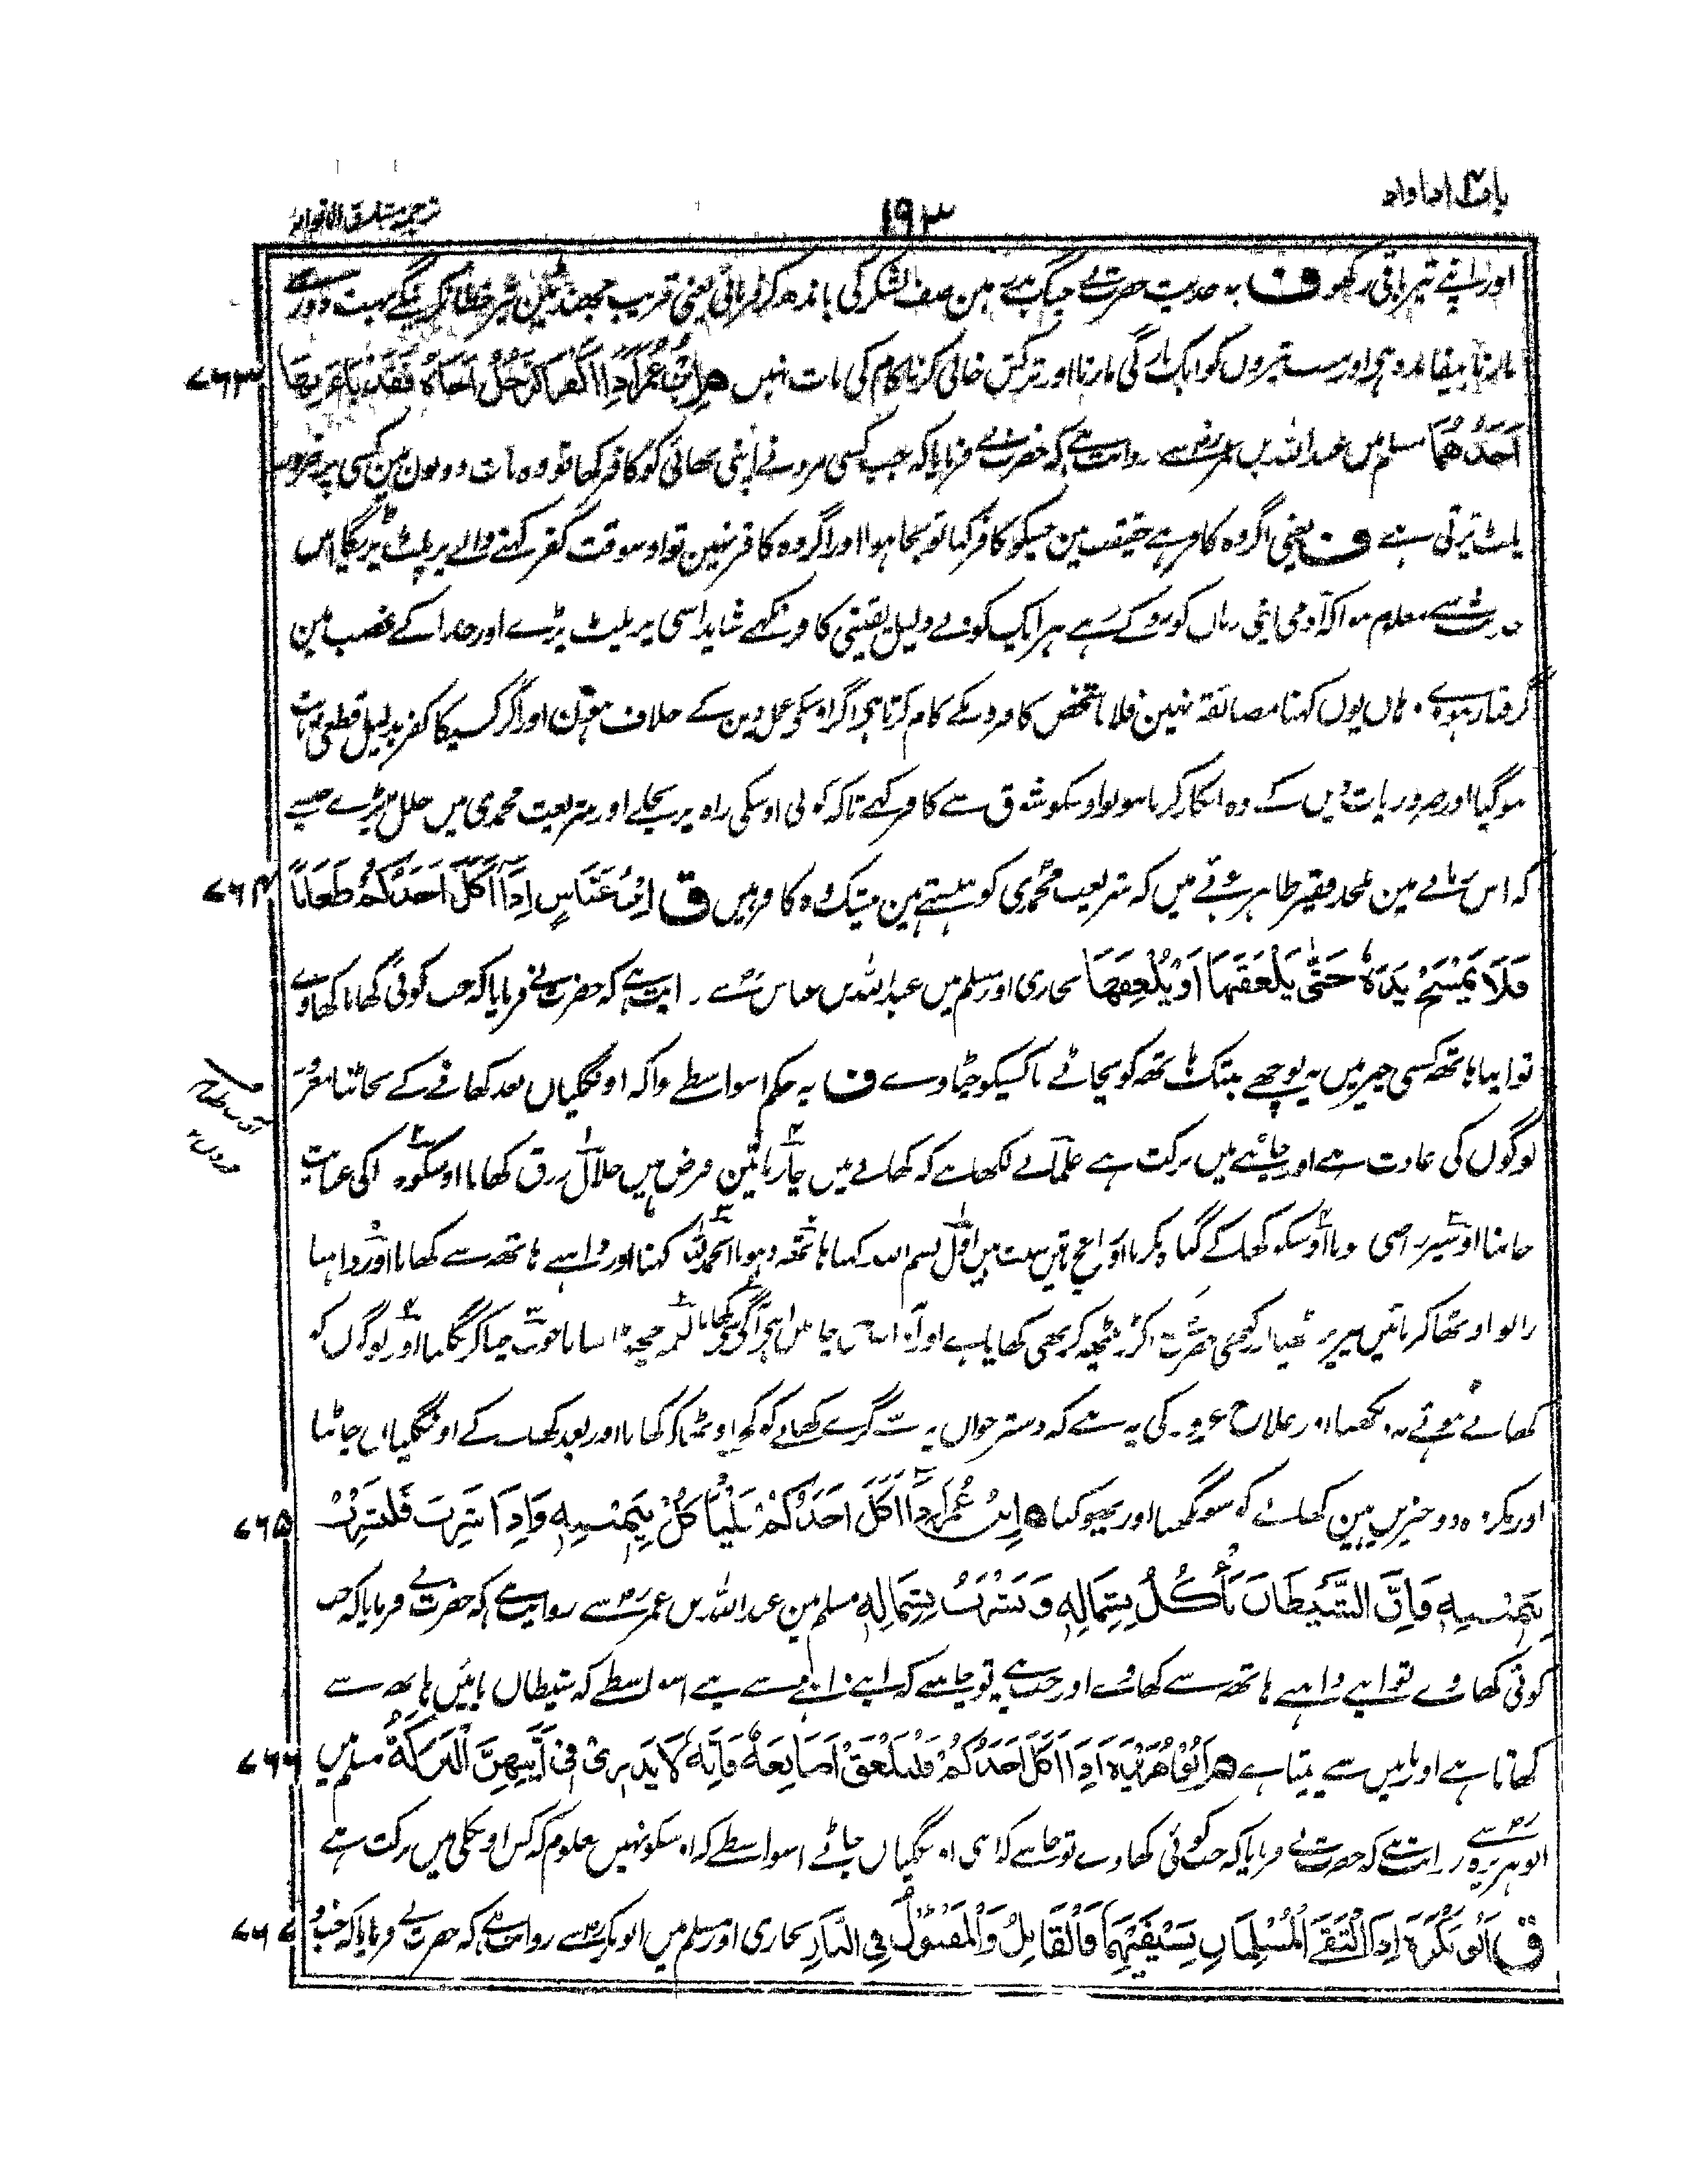 باب اذا واذ
۱۹۳
ترجمہ مشارق الانوار
اور اپنے تیر باقی رکھو ف یہ حدیث حضرت نے جنگ بدر مین صف لشکر کی باندھ کر فرمائی یعنی قریب تیر خطا نکرینگے بہت دور سے
مارنا بیفائدہ ہی اور سب تیروں کو ایک بارگی مارنا اور ترکش خالی کرنا کام کی بات نہیں م اِبْنُ عُمَرَ اِذَا اَكْفَرَ الرَّجُلُ اَخَاهُ فَقَدْ بَاءَ بِهَا ۷۶۳
اَحَدُهُمَا مسلم میں عبد اللہ بن عمر سے روایت ہے کہ حضرت نے فرمایا کہ جب کسی مرد نے اپنی بھائی کو کافر کہا تو وہ بات دونون مین کسی پر ضرور
پلٹ پڑتی ہے ف یعنی اگر وہ کافر ہے حقیقت مین جسکو کافر کہا تو بجا ہوا اور اگر وہ کافر نہین تو اوسوقت کفر کہنے والے پر پلٹ پڑیگا اس
حدیث سے معلوم ہوا کہ آدمی اپنی زبان کو روکے رہے ہر ایک کو بے دلیل یقینی کافر نکہے شاید اسی پر پلٹ پڑے اور خدا کے غضب مین
گرفتار ہووے۔ ہاں یوں کہنا مضائقہ نہین فلانا شخص کافرون کے کام کرتا ہی اگر اوسکی عمل دین کے خلاف ہون اور اگر کسیکا کفر بدلیل قطعی ثابت
ہوگیا اور ضروریات دیں کے وہ انکار کرتا ہو تو اوسکو شوق سے کافر کہے تاکہ کوئی اوسکی راہ پر نچلے اور شریعت محمدی میں خلل نپڑے جیسے
کہ اس زمانے مین ملحد فقیر ظاہر ہوئے ہیں کہ شریعت محمدی کو ہنستے ہین بیشک وہ کافر ہیں ق اِبْنُ عَبَّاسٍ اِذَا اَكَلَ اَحَدُكُمْ طَعَامًا ۷۶۴
فَلَا يَمْسَحْ يَدَهُ حَتّٰى يَلْعَقَهَا اَوْ يُلْعِقَهَا بخاری اور مسلم میں عبداللہ بن عباس سے روایت ہے کہ حضرت نے فرمایا کہ جب کوئی کھانا کھاوے
تو اپنا ہاتھ کسی چیز میں نہ پونچھے جبتک ہاتھ کو نچاٹے یا کسیکو چٹاوے ف یہ حکم اسواسطے ہوا کہ اونگلیاں بعد کھانے کے نچاٹنا مغرور
لوگوں کی عادت ہے اور چاٹنے میں برکت ہے علما نے لکھا ہے کہ کھانے میں چار باتیں فرض ہیں حلال رزق کھانا اوسکو خدا کی عنایت
جاننا اوسپر راضی ہونا اوسکو کھا کے گناہ نکرنا اور پانچ باتیں سنت ہیں اول بسم اللہ کہنا ہاتھ دھونا الحمد للہ کہنا اور داہنے ہاتھ سے کھانا اور داہنا
زانو اوٹھا کر بائیں پیر پر بیٹھنا اور کبھی حضرت نے اکڑو بیٹھ کر بھی کھایا ہے اور آداب چار ہیں اپنی آگے سے کھانا لقمہ چھوٹا بنانا خوب چبا کر نگلنا اور لوگوں کو
کھاتے ہوئے نہ دیکھنا اور علاج غرور کی یہ ہے کہ دسترخواں پر سے گرے کھانے کو اوٹھا کر کھانا اور بعد کھانے کے اونگلیاں چاٹنا
اور مکروہ دو چیزیں ہین کھانے کو سونگھنا اور پھونکنا م اِبْنُ عُمَرَ اِذَا اَكَلَ اَحَدُكُمْ فَلْيَأْكُلْ بِيَمِيْنِهٖ وَاِذَا شَرِبَ فَلْيَشْرَبْ ۷۶۵
بِيَمِيْنِهٖ فَاِنَّ الشَّيْطَانَ يَأْكُلُ بِشِمَالِهٖ وَيَشْرَبُ بِشِمَالِهٖ مسلم مین عبد اللہ بن عمر سے روایت ہے کہ حضرت نے فرمایا کہ جب
کوئی کھاوے تو اپنے داہنے ہاتھ سے کھاوے اور جب پیے تو چاہیے کہ اپنے داہنے سے پیے اسواسطے کہ شیطان بائیں ہاتھ سے
کھاتا ہے اور بائیں سے پیتا ہے م اَبُوْ هُرَيْرَةَ اِذَا اَكَلَ اَحَدُكُمْ فَلْيَلْعَقْ اَصَابِعَهُ فَاِنَّهُ لَا يَدْرِيْ فِيْ اَيَّتِهِنَّ الْبَرَكَةُ مسلم میں ۷۶۶
ابو ہریرہ سے روایت ہے کہ حضرت نے فرمایا کہ جب کوئی کھاوے تو چاہیے کہ اپنی اونگلیاں چاٹے اسواسطے کہ اوسکو نہیں معلوم کہ کس اونگلی میں برکت ہے
ق اَبُوْ بَكْرَةَ اِذَا الْتَقَى الْمُسْلِمَانِ بِسَيْفَيْهِمَا فَالْقَاتِلُ وَالْمَقْتُوْلُ فِي النَّارِ بخاری اور مسلم میں ابو بکرہ سے روایت ہے کہ حضرت نے فرمایا کہ جب دو ۷۶۷